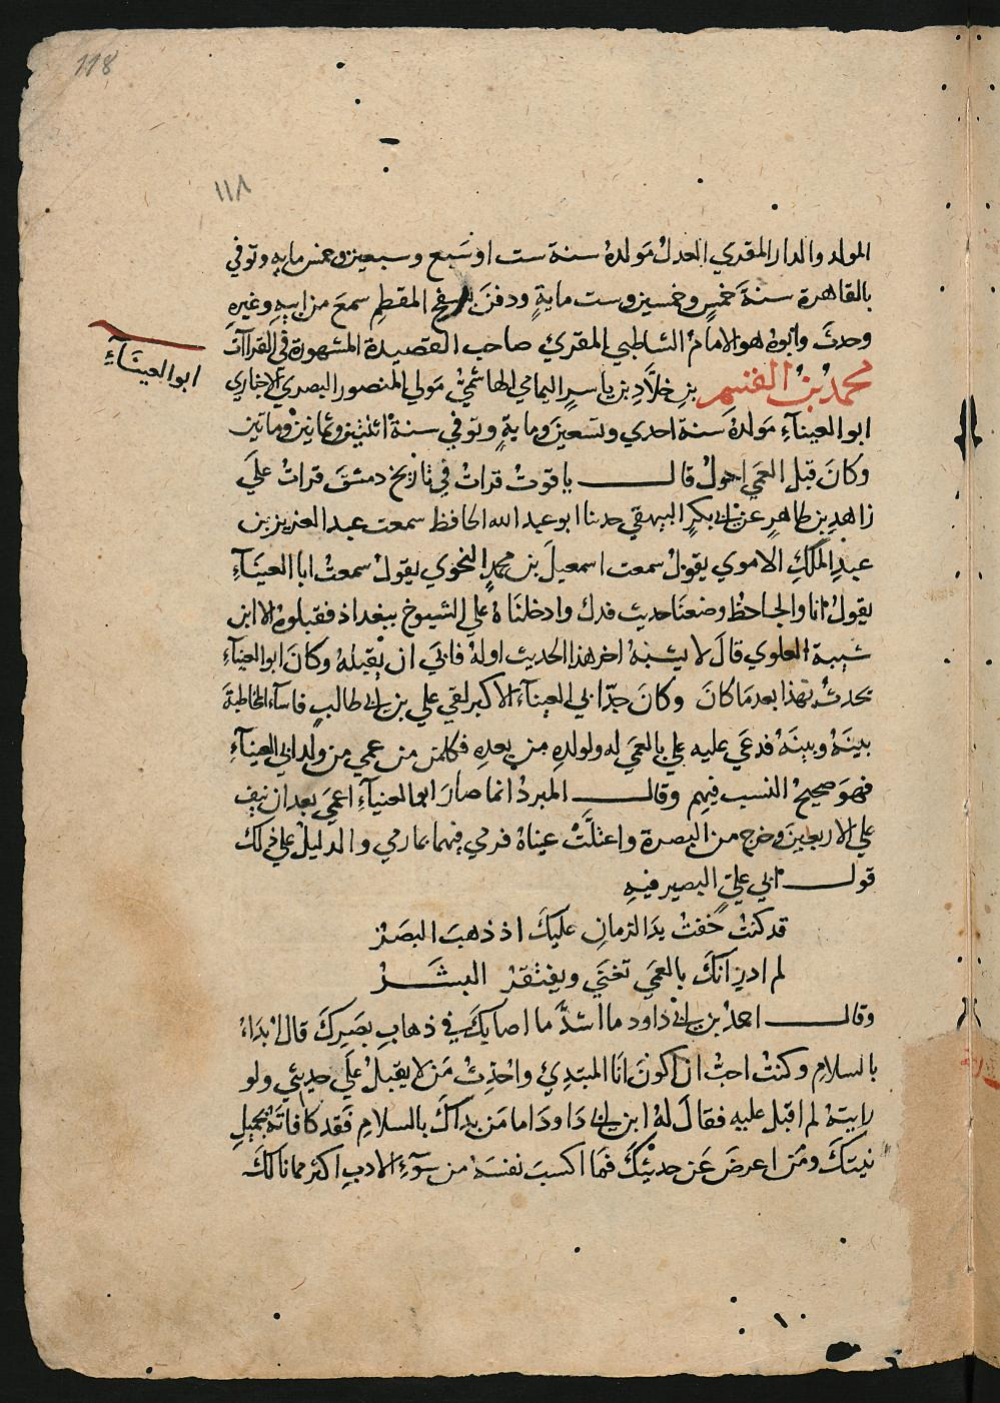 118
١١٨
المولد والدار المقري العدل مَولدهُ سنة ست او سَبع وسبعين وخمس مايهٍ وتوفي
بالقاهرة سنةَ خمسٍ وخمسين وست مايةٍ ودفنَ بسفح المقطمِ سمعَ من ابيهِ وغيرهِ
وحدثَ وابوهُ هو الامامُ الشاطبي المقريُ صاحب القصيدة المشهورة في القراآت
ابو العينَآءِ
محمدُ بنُ القسم بن خلاَّدِ بن ياسرٍ اليمامي الهاشميُّ مَولي المنصور البصري الاخباري
ابو العينآءِ مَولدهُ سنة احدي وتسعينَ ومايةٍ وتوفي سنةَ اثنتين وثمانين ومآتين
وكانَ قبل العمَي احولُ قال ياقوتُ قراتُ في تاريخ دمشقَ قراتُ علَي
زاهدِ بن طاهرٍ عن ابي بكرٍ البيهقي حدثنا ابو عبد الله الحافظ سمعت عبد العزيز بن
عبدِ المَلكِ الاموي يقولُ سمعت اسمعيلَ بن محمدٍ النحوي يقولُ سمعتُ ابا العينَآءِ
يقولُ انا والجاحظُ وضعنَا حديث فدك وادخلنَاهُ علي الشيوخ ببغداذ فقبلوهُ الا ابن
شيبة العلوي قالَ لا يشبهُ اخر هذا الحديث اولهُ فابَي ان يقبلهُ وكانَ ابو العينآءِ
يحدثُ بهذا بعد مَا كانَ وكانَ جدّ ابي العينآءِ الاكبر لقي علي بن ابي طالبٍ فاسآء المخاطبةَ
بينَهُ وبينَهُ فدعَي عليه علي بالعمَي له ولولدهِ من بعدهِ فكلمن من عمي من ولد ابي العينآءِ
فهوَ صحيحُ النسب فيهم وقال المبردُ انما صارَ ابو العينآءِ اعمَي بعد ان نيف
علي الاربعينَ وخرج من البصرة واعتلَّتْ عيناهُ فرمي فيهما بما رمي والدليلُ علي ذلك
قول ابي عليٍّ البصير فيهِ
قد كنتُ خفتُ يدَ الزمانِ عليكَ اذ ذهبَ البصَرْ
لم ادرِ انكَ بالعمَي تغنَي ويفتقرْ البشَرْ
وقال احمدُ بن ابي داود ما اشدَّ ما اصابكَ في ذهابِ بصَركَ قال ابْدَاءُ
بالسلامِ وكنتُ احبُّ ان اكونَ انَا المبتدِي واحَدِثُ مَن لا يقبلُ علَي حديثي ولو
رايتهُ لم اقبل عليهِ فقالَ لهُ ابن ابي دَاودَ اما مَن بداكَ بالسلامِ فَقد كافاتَهُ بجميلِ
نيتكَ ومَن اعرضَ عَن حديثكَ فما اكسبَ نفسَهُ من سوٓءِ الادبِ اكثر مما نالكَ